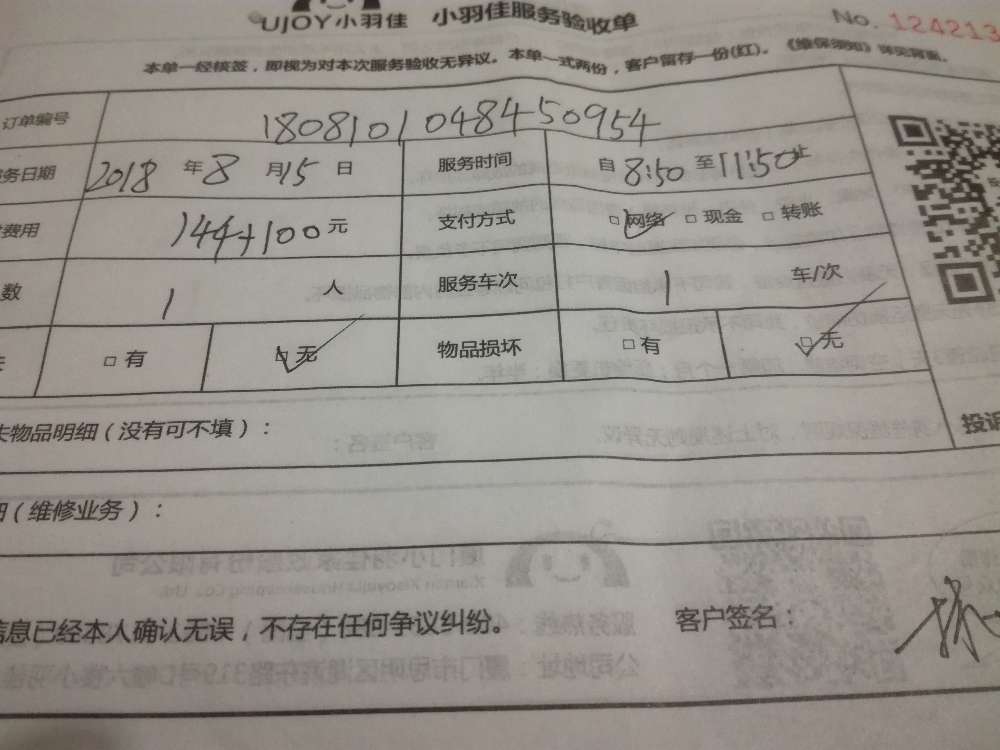 UJOY小羽佳 小羽佳服务验收单 No. 124213
本单一经核签，即视为对本次服务验收无异议。本单一式两份，客户留存一份(红)。《维保须知》详见背面。
订单编号 180810104845 0954
务日期 2018 年 8 月 15 日 服务时间 自 8:50 至 11:50 止
费用 144+100 元 支付方式 □ 网络 □ 现金 □ 转账
数 1 人 服务车次 1 车/次
□ 有 □ 无 物品损坏 □ 有 □ 无
失物品明细（没有可不填）： 投诉
细（维修业务）：
信息已经本人确认无误，不存在任何争议纠纷。 客户签名：